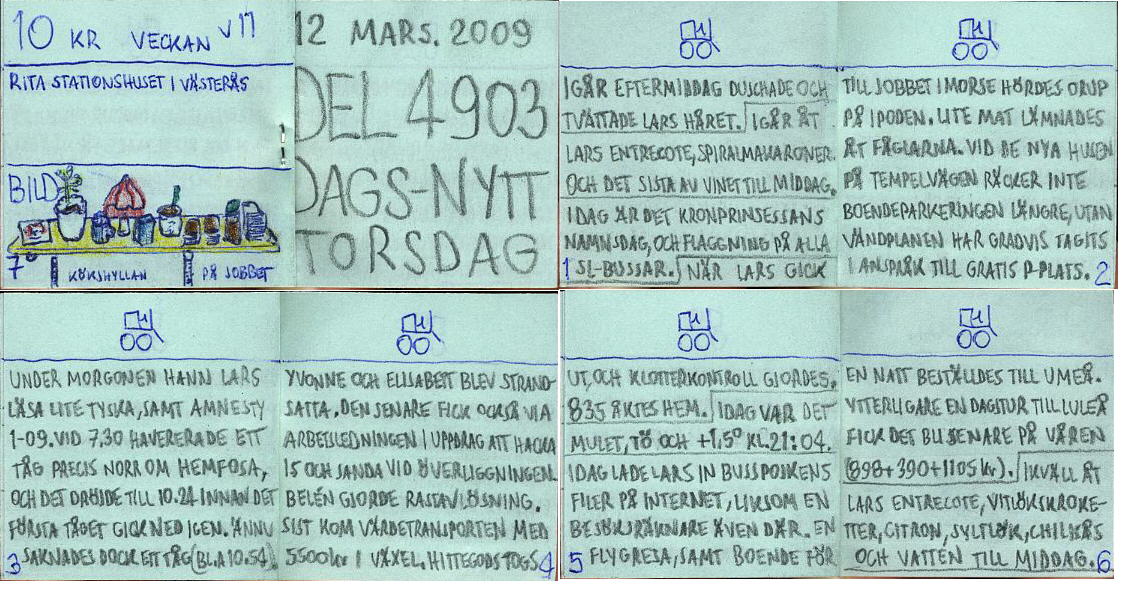 10 KR VECKAN V 11
RITA STATIONSHUSET I VÄSTERÅS
BILD
7
KÖKSHYLLAN PÅ JOBBET
12 MARS. 2009
DEL 4903
DAGS-NYTT
TORSDAG
IGÅR EFTERMIDDAG DUSCHADE OCH
TVÄTTADE LARS HÅRET. IGÅR ÅT
LARS ENTRECOTE, SPIRALMAKARONER
OCH DET SISTA AV VINET TILL MIDDAG.
IDAG ÄR DET KRONPRINSESSANS
NAMNSDAG, OCH FLAGGNING PÅ ALLA
SL-BUSSAR. NÄR LARS GICK
1
TILL JOBBET I MORSE HÖRDES ORUP
PÅ IPODEN. LITE MAT LÄMNADES
ÅT FÅGLARNA. VID DE NYA HUSEN
PÅ TEMPELVÄGEN RÄCKER INTE
BOENDEPARKERINGEN LÄNGRE, UTAN
VÄNDPLANEN HAR GRADVIS TAGITS
I ANSPRÅK TILL GRATIS P-PLATS.
2
UNDER MORGONEN HANN LARS
LÄSA LITE TYSKA, SAMT AMNESTY
1-09. VID 7.30 HAVERERADE ETT
TÅG PRECIS NORR OM HEMFOSA,
OCH DET DRÖJDE TILL 10.24 INNAN DET
FÖRSTA TÅGET GICK NED IGEN. ÄNNU
SAKNADES DOCK ETT TÅG (BL.A 10.54).
3
YVONNE OCH ELISABETT BLEV STRAND-
SATTA, DEN SENARE FICK OCKSÅ VIA
ARBETSLEDNINGEN I UPPDRAG ATT HACKA
IS OCH SANDA VID ÖVERLIGGNINGEN.
BELÉN GJORDE RASTAVLÖSNING.
SIST KOM VÄRDETRANSPORTEN MED
5500 kr I VÄXEL. HITTEGODS TOGS
4
UT, OCH KLOTTERKONTROLL GJORDES.
835 ÅKTES HEM. IDAG VAR DET
MULET, TÖ OCH +1,5° KL. 21:04.
IDAG LADE LARS IN BUSSPOJKENS
FILER PÅ INTERNET, LIKSOM EN
BESÖKSRÄKNARE ÄVEN DÄR. EN
FLYGRESA, SAMT BOENDE FÖR
5
EN NATT BESTÄLLDES TILL UMEÅ.
YTTERLIGARE EN DAGSTUR TILL LULEÅ
FICK DET BLI SENARE PÅ VÅREN
(898+390+1105 kr). IKVÄLL ÅT
LARS ENTRECOTE, VITLÖKSKROKE-
TTER, CITRON, SYLTLÖK, CHILISÅS
OCH VATTEN TILL MIDDAG.
6